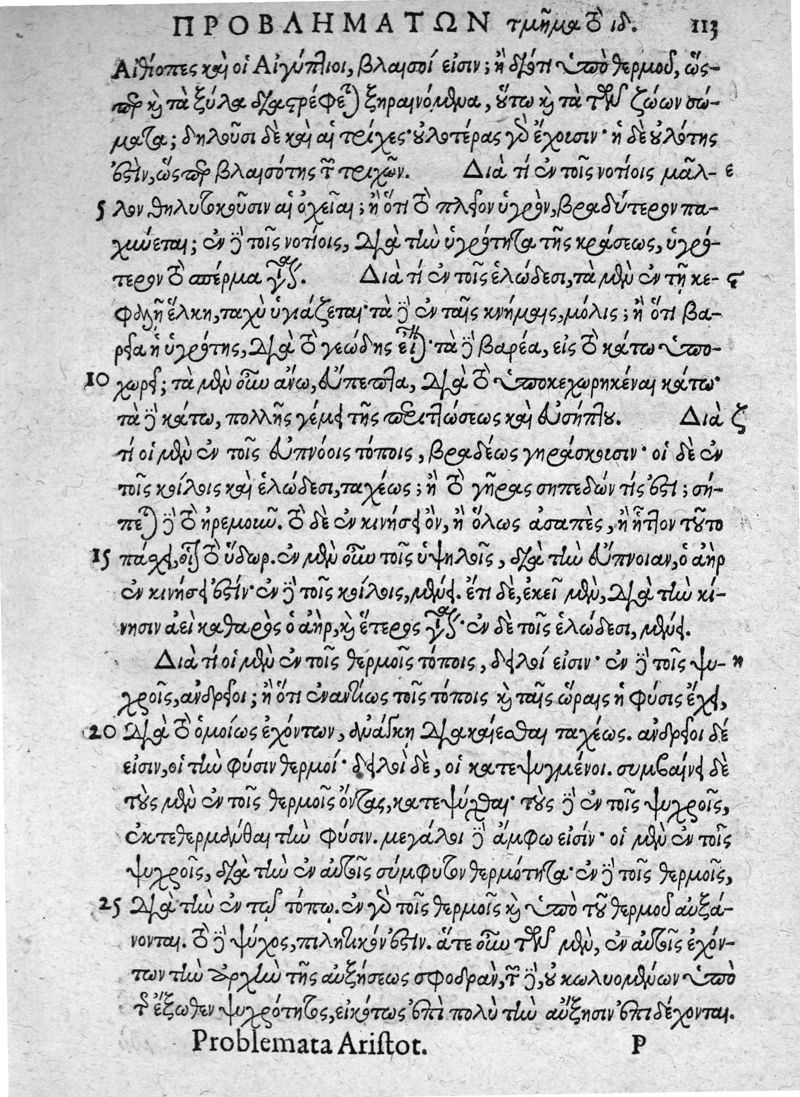 ΠΡΟΒΛΗΜΑΤΩΝ τμῆμα τὸ ιδ. 113
Αἰθίοπες καὶ οἱ Αἰγύπτιοι, βλαισοί εἰσιν; ἢ διότι ὑπὸ θερμοῦ, ὥς-
περ καὶ τὰ ξύλα διαστρέφεται ξηραινόμενα, οὕτω καὶ τὰ τῶν ζώων σώ-
ματα; δηλοῦσι δὲ καὶ αἱ τρίχες· οὐλοτέρας γὰρ ἔχουσιν· ἡ δὲ οὐλότης
ἐστὶν, ὥσπερ βλαισότης τῶν τριχῶν. Διὰ τί ἐν τοῖς νοτίοις μᾶλ- ε
5 λον θηλυτοκοῦσιν αἱ ὀχεῖαι; ἢ ὅτι τὸ πλεῖον ὑγρὸν, βραδύτερον πα-
χύνεται; ἐν δὲ τοῖς νοτίοις, διὰ τὴν ὑγρότητα τῆς κράσεως, ὑγρό-
τερον τὸ σπέρμα γίνεται. Διὰ τί ἐν τοῖς ἑλώδεσι, τὰ μὲν ἐν τῇ κε- ϛ
φαλῇ ἕλκη, ταχὺ ὑγιάζεται· τὰ δὲ ἐν ταῖς κνήμαις, μόλις; ἢ ὅτι βα-
ρεῖα ἡ ὑγρότης, διὰ τὸ γεώδης εἶναι· τὰ δὲ βαρέα, εἰς τὸ κάτω ὑπο-
10 χωρεῖ; τὰ μὲν οὖν ἄνω, εὔπεπτα, διὰ τὸ ὑποκεχωρηκέναι κάτω·
τὰ δὲ κάτω, πολλῆς γέμει τῆς περιττώσεως καὶ εὐσήπτου. Διὰ ζ
τί οἱ μὲν ἐν τοῖς εὐπνόοις τόποις, βραδέως γηράσκουσιν· οἱ δὲ ἐν
τοῖς κοίλοις καὶ ἑλώδεσι, ταχέως; ἢ τὸ γῆρας σηπεδών τίς ἐστι; σή-
πεται δὲ τὸ ἠρεμοῦν. τὸ δὲ ἐν κινήσει ὂν, ἢ ὅλως ἀσαπὲς, ἢ ἧττον τοῦτο
15 πάσχει, οἷον τὸ ὕδωρ. ἐν μὲν οὖν τοῖς ὑψηλοῖς, διὰ τὴν εὔπνοιαν, ὁ ἀὴρ
ἐν κινήσει ἐστίν· ἐν δὲ τοῖς κοίλοις, μένει. ἔτι δὲ, ἐκεῖ μὲν, διὰ τὴν κί-
νησιν ἀεὶ καθαρὸς ὁ ἀὴρ, καὶ ἕτερος γίνεται· ἐν δὲ τοῖς ἑλώδεσι, μένει.
Διὰ τί οἱ μὲν ἐν τοῖς θερμοῖς τόποις, δειλοί εἰσιν· ἐν δὲ τοῖς ψυ- η
χροῖς, ἀνδρεῖοι; ἢ ὅτι ἐναντίως τοῖς τόποις καὶ ταῖς ὥραις ἡ φύσις ἔχει,
20 διὰ τὸ ὁμοίως ἐχόντων, ἀνάγκη διακαίεσθαι ταχέως. ἀνδρεῖοι δέ
εἰσιν, οἱ τὴν φύσιν θερμοί· δειλοὶ δὲ, οἱ κατεψυγμένοι. συμβαίνει δὲ
τοὺς μὲν ἐν τοῖς θερμοῖς ὄντας, κατεψύχθαι· τοὺς δὲ ἐν τοῖς ψυχροῖς,
ἐκτεθερμάνθαι τὴν φύσιν. μεγάλοι δὲ ἄμφω εἰσίν· οἱ μὲν ἐν τοῖς
ψυχροῖς, διὰ τὴν ἐν αὐτοῖς σύμφυτον θερμότητα· ἐν δὲ τοῖς θερμοῖς,
25 διὰ τὴν ἐν τῷ τόπῳ. ἐν γὰρ τοῖς θερμοῖς καὶ ὑπὸ τοῦ θερμοῦ αὐξά-
νονται. τὸ δὲ ψύχος, πιλητικόν ἐστιν. ἅτε οὖν τῶν μὲν, ἐν αὐτοῖς ἐχόν-
των τὴν ἀρχὴν τῆς αὐξήσεως σφοδρὰν, τῶν δὲ, οὐ κωλυομένων ὑπὸ
τῆς ἔξωθεν ψυχρότητος, εἰκότως ἐπὶ πολὺ τὴν αὔξησιν ἐπιδέχονται.
Problemata Aristot. P